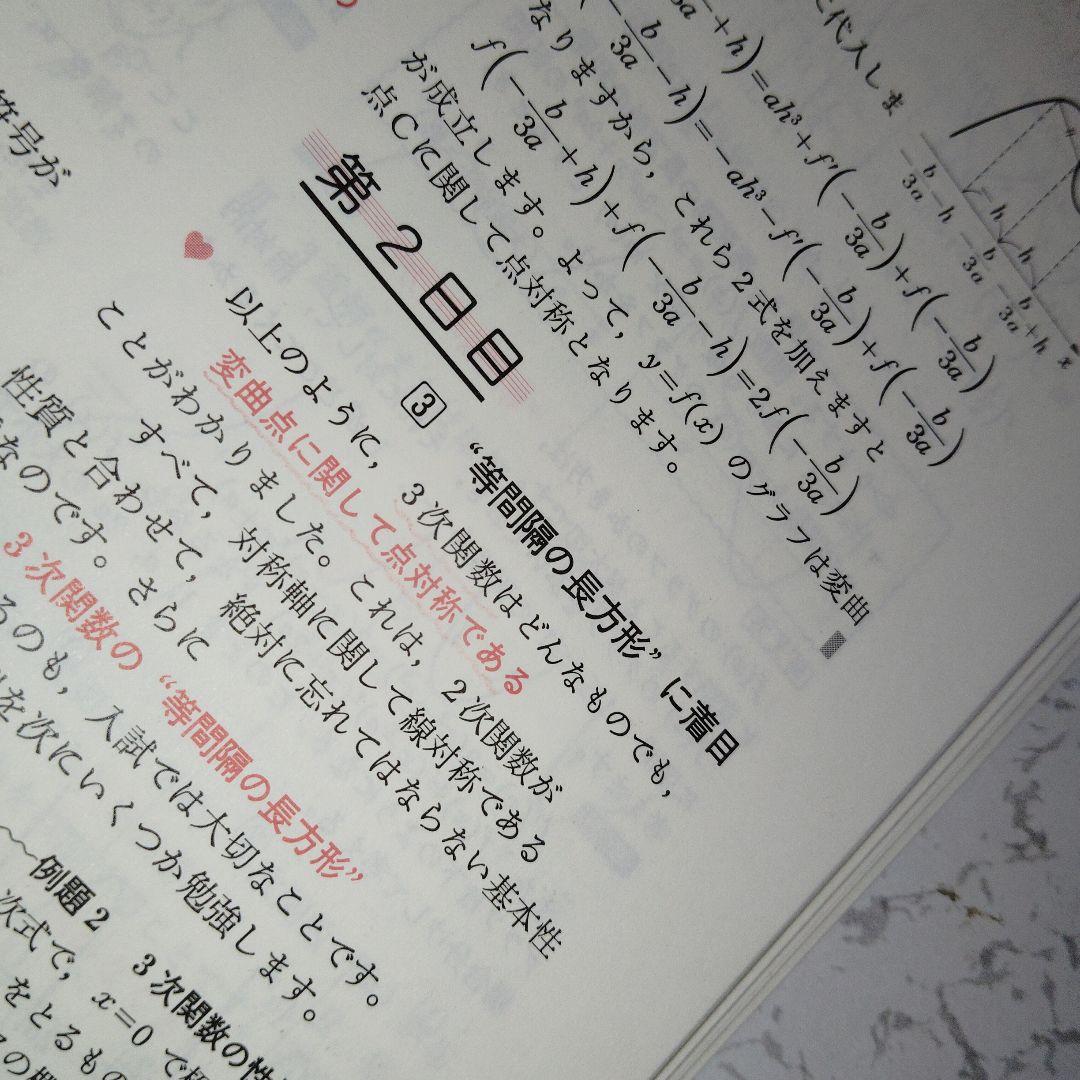 に代入しま
+h)=ah³+f'(-b/3a)+f(-b/3a)
b/3a-h)=-ah³-f'(-b/3a)+f(-b/3a)
なりますから，これら2式を加えますと
f(-b/3a+h)+f(-b/3a-h)=2f(-b/3a)
が成立します。よって，y=f(x)のグラフは変曲
点Cに関して点対称となります。
-b/3a-h -b/3a -b/3a+h x
h h
第2日目
3 “等間隔の長方形”に着目
以上のように，3次関数はどんなものでも，
変曲点に関して点対称である
ことがわかりました。これは，2次関数が
すべて，対称軸に関して線対称である
性質と合わせて，絶対に忘れてはならない基本性
なのです。さらに
3次関数の“等間隔の長方形”
るのも，入試では大切なことです。
を次にいくつか勉強します。
例題2 3次関数の性
次式で，x=0で
をとるもの
符号が